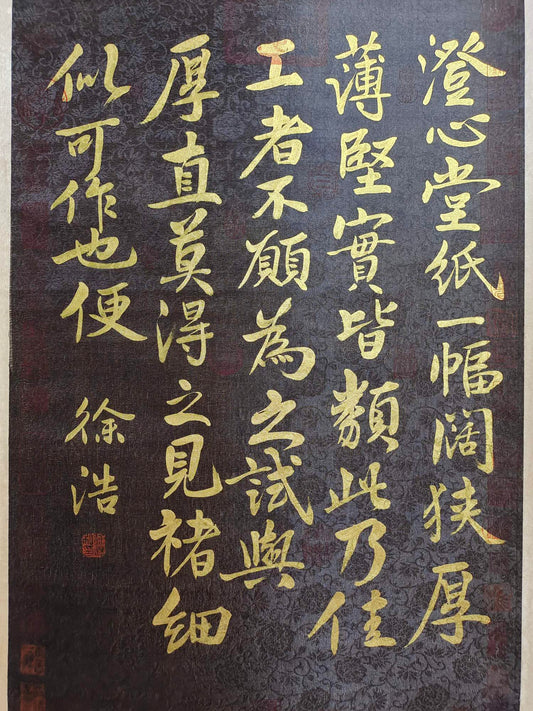 澄心堂纸一幅阔狭厚
薄堅實皆類此乃佳
工者不願為之試與
厚直莫得之見褚細
似可作也便
徐浩